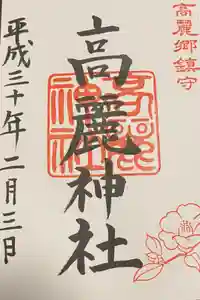 高麗郷鎮守
高麗神社
高麗神社
平成三十年二月三日